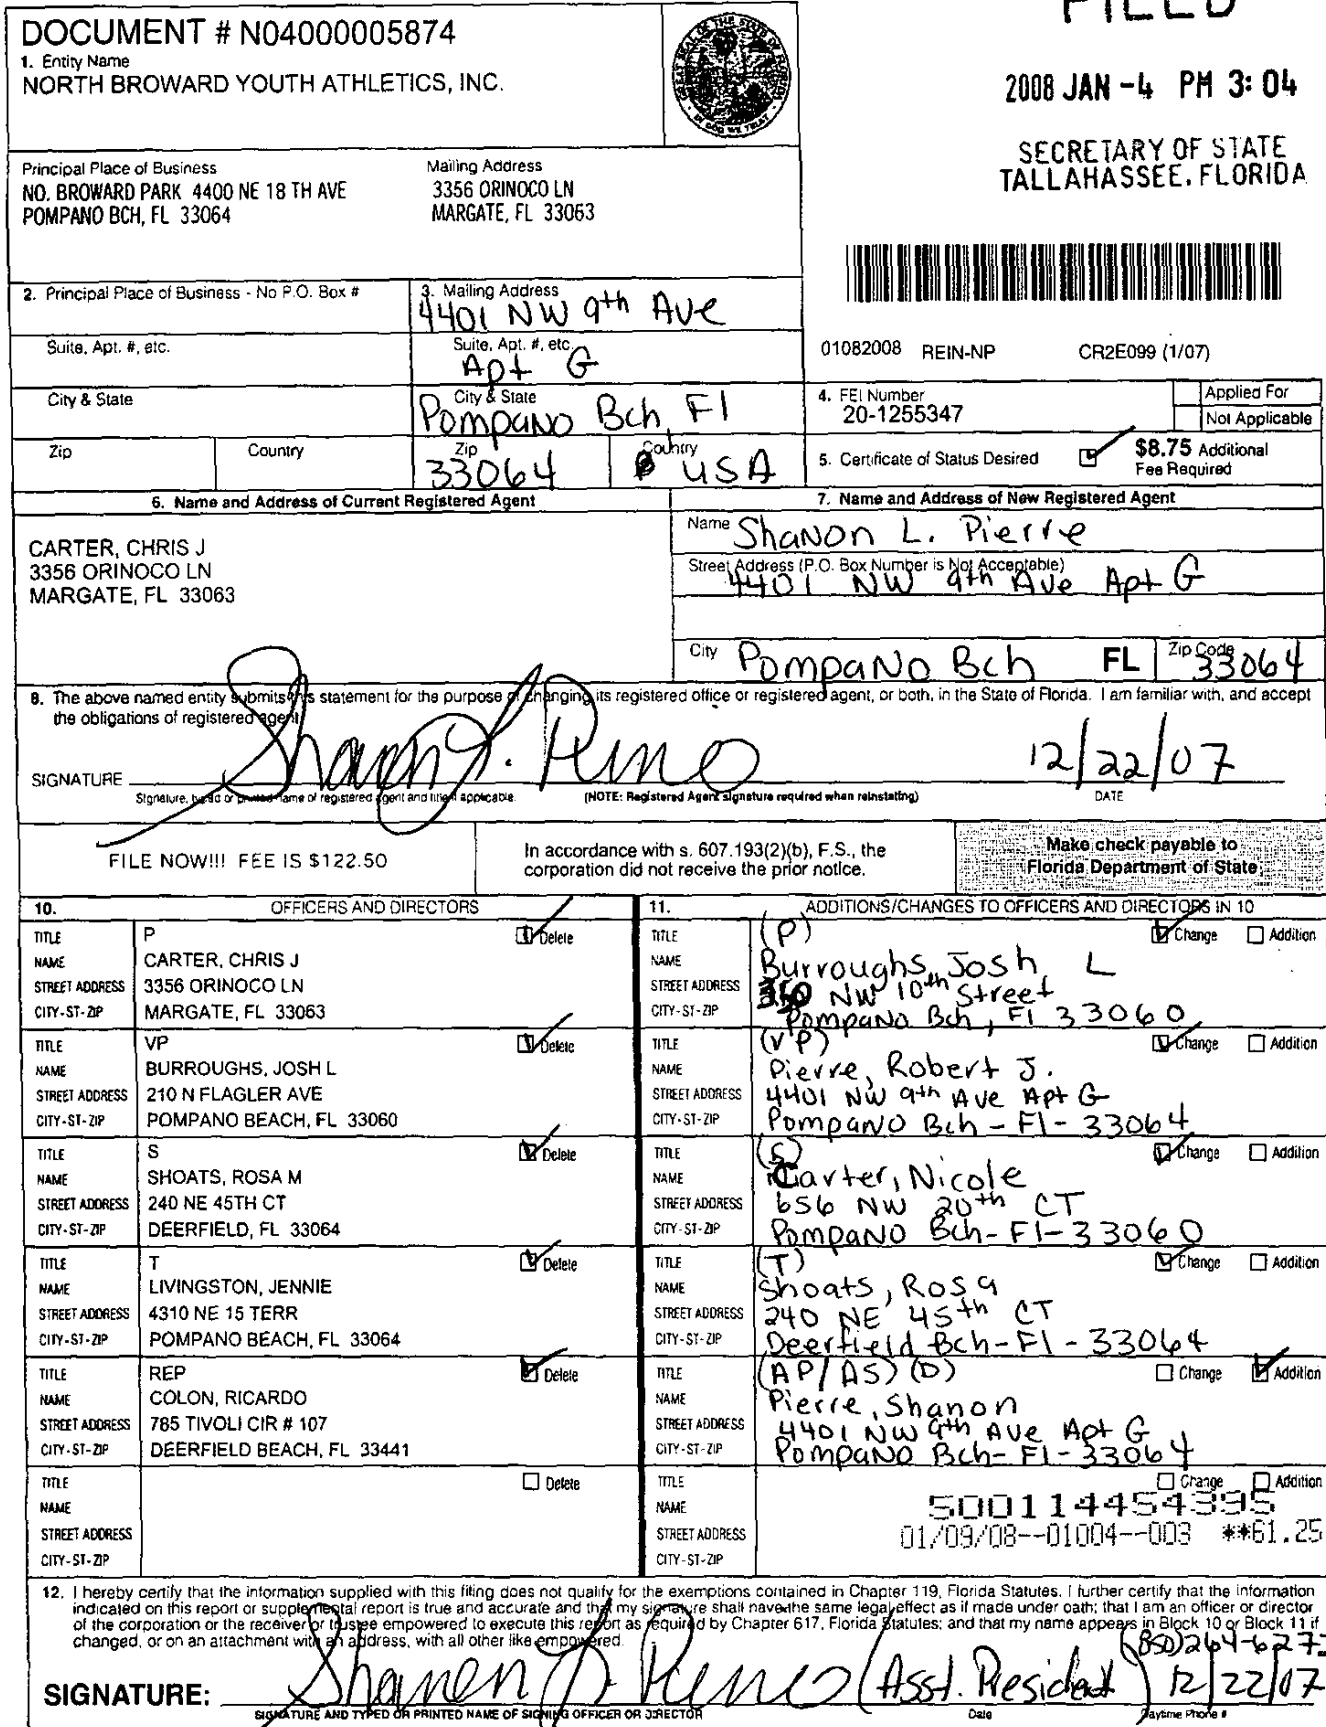 FILED
2008 JAN -4 PM 3:04
SECRETARY OF STATE
TALLAHASSEE, FLORIDA
DOCUMENT # N04000005874
1. Entity Name
NORTH BROWARD YOUTH ATHLETICS, INC.
GREAT SEAL OF THE STATE OF FLORIDA
IN GOD WE TRUST
Principal Place of Business
NO. BROWARD PARK 4400 NE 18 TH AVE
POMPANO BCH, FL 33064
Mailing Address
3356 ORINOCO LN
MARGATE, FL 33063
2. Principal Place of Business - No P.O. Box #
3. Mailing Address
4401 NW 9th Ave
Suite, Apt. #, etc.
Suite, Apt. #, etc.
Apt G
City & State
City & State
Pompano Bch, Fl
Zip
Country
Zip
33064
Country
USA
01082008 REIN-NP CR2E099 (1/07)
4. FEI Number
20-1255347
Applied For
Not Applicable
5. Certificate of Status Desired
$8.75 Additional
Fee Required
6. Name and Address of Current Registered Agent
CARTER, CHRIS J
3356 ORINOCO LN
MARGATE, FL 33063
7. Name and Address of New Registered Agent
Name Shanon L. Pierre
Street Address (P.O. Box Number is Not Acceptable)
4401 NW 9th Ave Apt G
City Pompano Bch FL Zip Code 33064
8. The above named entity submits this statement for the purpose of changing its registered office or registered agent, or both, in the State of Florida. I am familiar with, and accept
the obligations of registered agent.
SIGNATURE 12/22/07
Signature, typed or printed name of registered agent and title if applicable. (NOTE: Registered Agent signature required when reinstating) DATE
FILE NOW!!! FEE IS $122.50
In accordance with s. 607.193(2)(b), F.S., the
corporation did not receive the prior notice.
Make check payable to
Florida Department of State
10. OFFICERS AND DIRECTORS
TITLE P Delete
NAME CARTER, CHRIS J
STREET ADDRESS 3356 ORINOCO LN
CITY-ST-ZIP MARGATE, FL 33063
TITLE VP Delete
NAME BURROUGHS, JOSH L
STREET ADDRESS 210 N FLAGLER AVE
CITY-ST-ZIP POMPANO BEACH, FL 33060
TITLE S Delete
NAME SHOATS, ROSA M
STREET ADDRESS 240 NE 45TH CT
CITY-ST-ZIP DEERFIELD, FL 33064
TITLE T Delete
NAME LIVINGSTON, JENNIE
STREET ADDRESS 4310 NE 15 TERR
CITY-ST-ZIP POMPANO BEACH, FL 33064
TITLE REP Delete
NAME COLON, RICARDO
STREET ADDRESS 785 TIVOLI CIR # 107
CITY-ST-ZIP DEERFIELD BEACH, FL 33441
TITLE Delete
NAME
STREET ADDRESS
CITY-ST-ZIP
11. ADDITIONS/CHANGES TO OFFICERS AND DIRECTORS IN 10
TITLE (P) Change Addition
NAME Burroughs, Josh L
STREET ADDRESS NW 10th Street
CITY-ST-ZIP Pompano Bch, Fl 33060
TITLE (VP) Change Addition
NAME Pierre, Robert J.
STREET ADDRESS 4401 NW 9th Ave Apt G
CITY-ST-ZIP Pompano Bch - Fl - 33064
TITLE (S) Change Addition
NAME Carter, Nicole
STREET ADDRESS 656 NW 20th CT
CITY-ST-ZIP Pompano Bch - Fl - 33060
TITLE (T) Change Addition
NAME Shoats, Rosa
STREET ADDRESS 240 NE 45th CT
CITY-ST-ZIP Deerfield Bch - Fl - 33064
TITLE (AP/AS) (D) Change Addition
NAME Pierre, Shanon
STREET ADDRESS 4401 NW 9th Ave Apt G
CITY-ST-ZIP Pompano Bch - Fl - 33064
TITLE Change Addition
NAME 500114454395
STREET ADDRESS 01/09/08--01004--003 **61.25
CITY-ST-ZIP
12. I hereby certify that the information supplied with this filing does not qualify for the exemptions contained in Chapter 119, Florida Statutes. I further certify that the information
indicated on this report or supplemental report is true and accurate and that my signature shall have the same legal effect as if made under oath; that I am an officer or director
of the corporation or the receiver or trustee empowered to execute this report as required by Chapter 617, Florida Statutes; and that my name appears in Block 10 or Block 11 if
changed, or on an attachment with an address, with all other like empowered.
SIGNATURE: (Asst. President) 12/22/07
SIGNATURE AND TYPED OR PRINTED NAME OF SIGNING OFFICER OR DIRECTOR Date Daytime Phone #